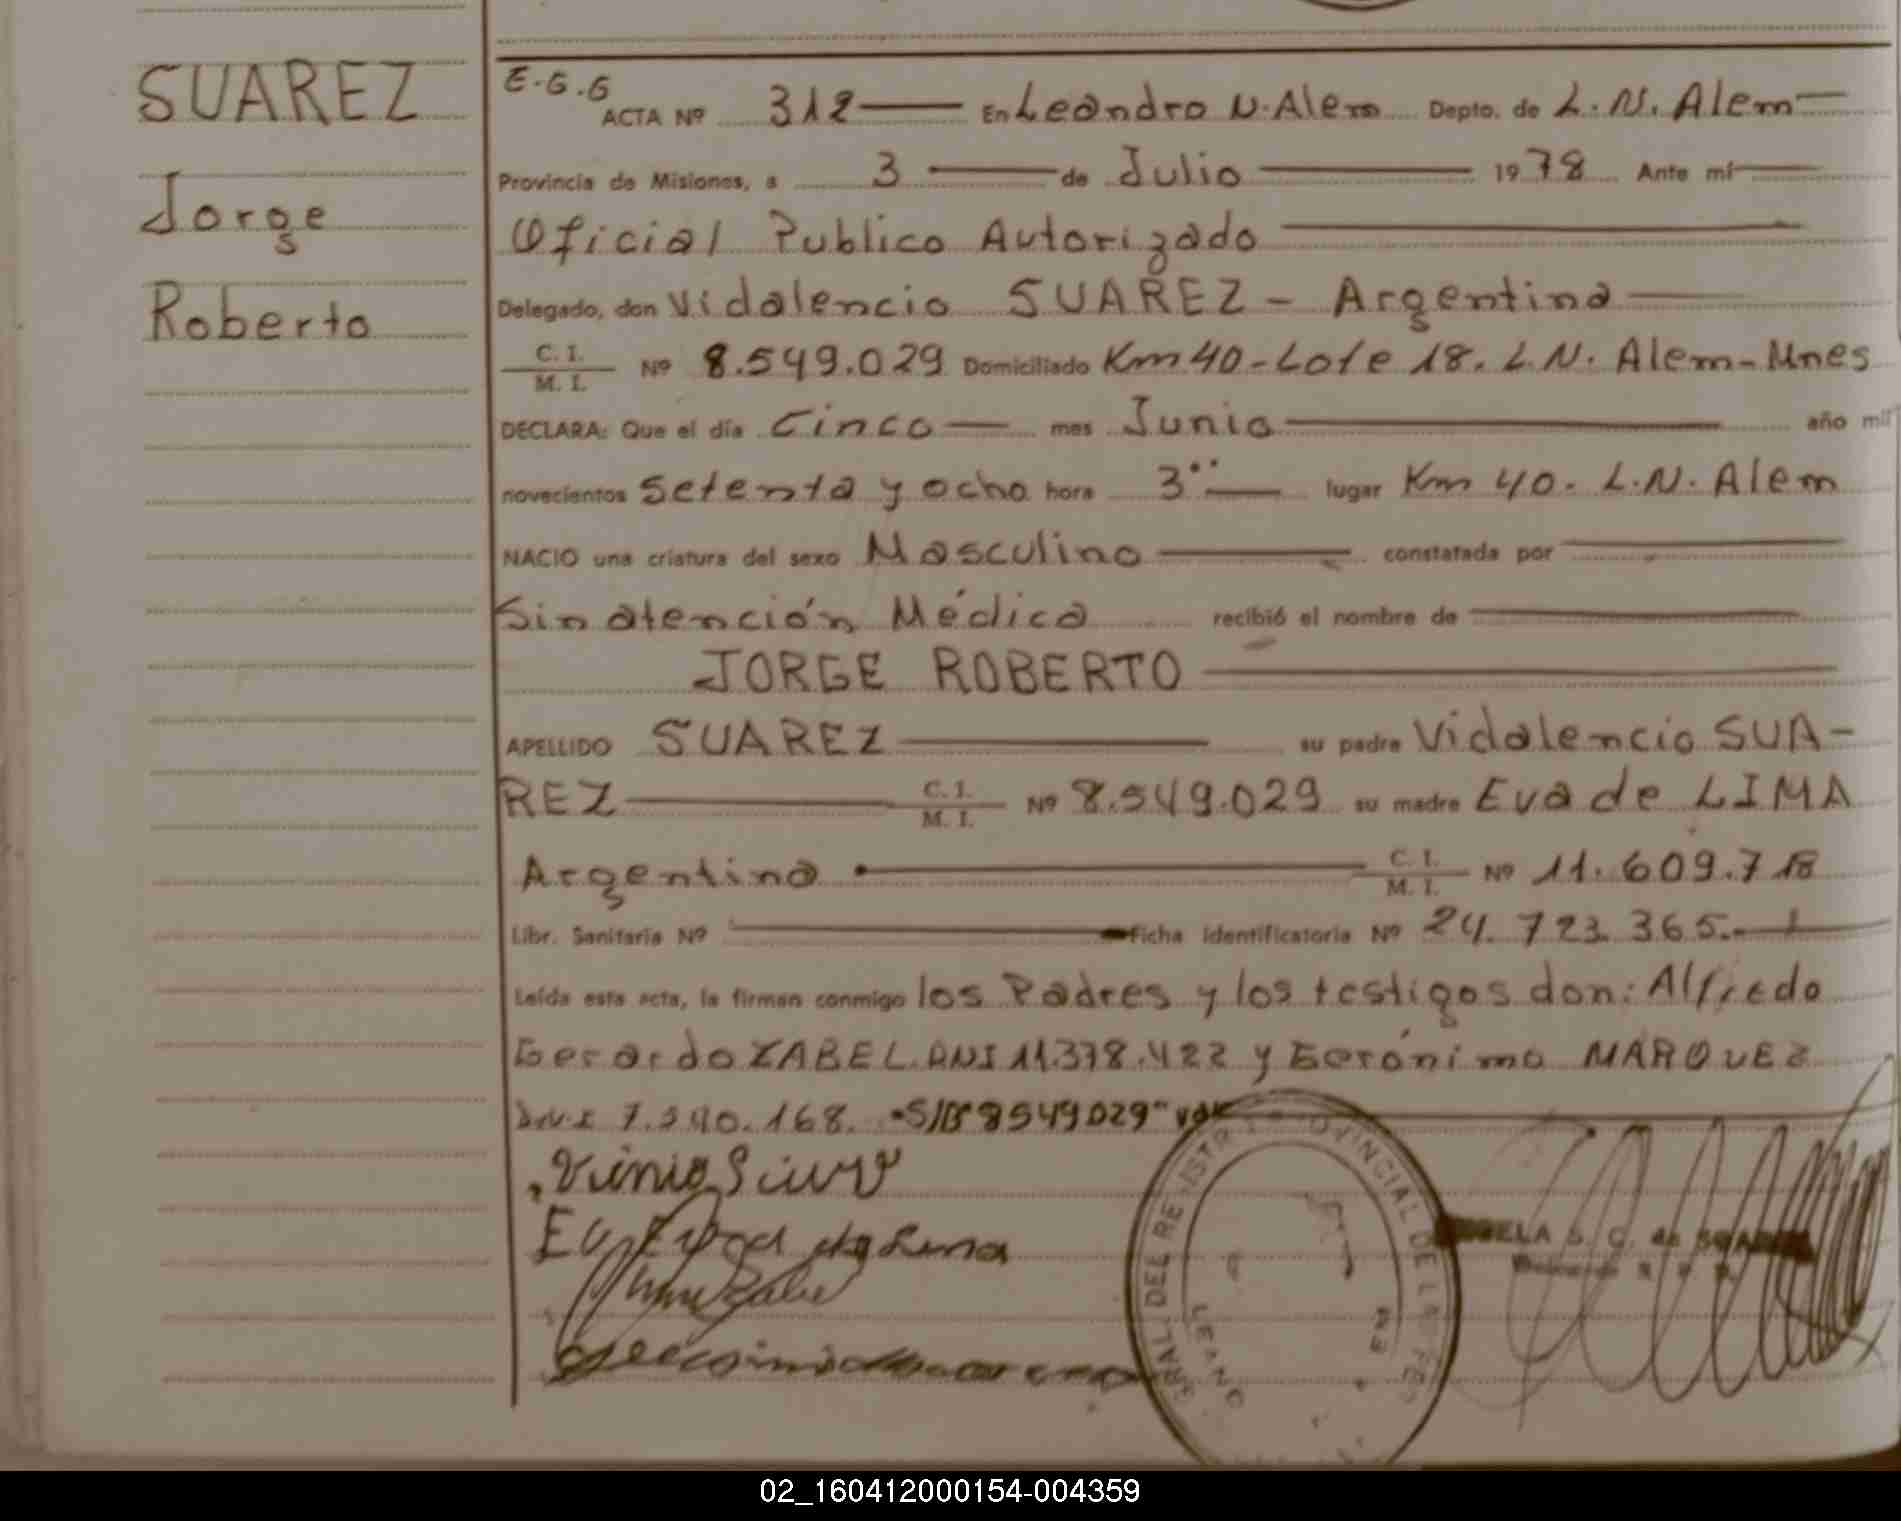 SUAREZ
Jorge
Roberto
E.G.G
ACTA Nº 312 En Leandro N. Alem Depto. de L. N. Alem
Provincia de Misiones, a 3 de Julio 1978 Ante mí
Oficial Publico Autorizado
Delegado, don Vidalencio SUAREZ - Argentina
C. I. / M. I. Nº 8.549.029 Domiciliado Km 40 - Lote 18. L.N. Alem - Mnes
DECLARA: Que el día Cinco mes Junio año mil
novecientos Setenta y ocho hora 3 lugar Km 40. L.N. Alem
NACIO una criatura del sexo Masculino constatada por
Sin atención Médica recibió el nombre de
JORGE ROBERTO
APELLIDO SUAREZ su padre Vidalencio SUA-
REZ C. I. / M. I. Nº 8.549.029 su madre Eva de LIMA
Argentina C. I. / M. I. Nº 11.609.718
Libr. Sanitaria Nº ficha identificatoria Nº 24.723.365.-
Leída esta acta, la firman conmigo los Padres y los testigos don: Alfredo
Gerardo ZABEL. DNI 11.378.422 y Gerónimo MARQUEZ
D.N.I 7.540.168. "S/B 8549029" vale
Eva de Lima
GRAL. DEL REGISTRO PROVINCIAL DE LAS PER
LEAND
EM
02_160412000154-004359